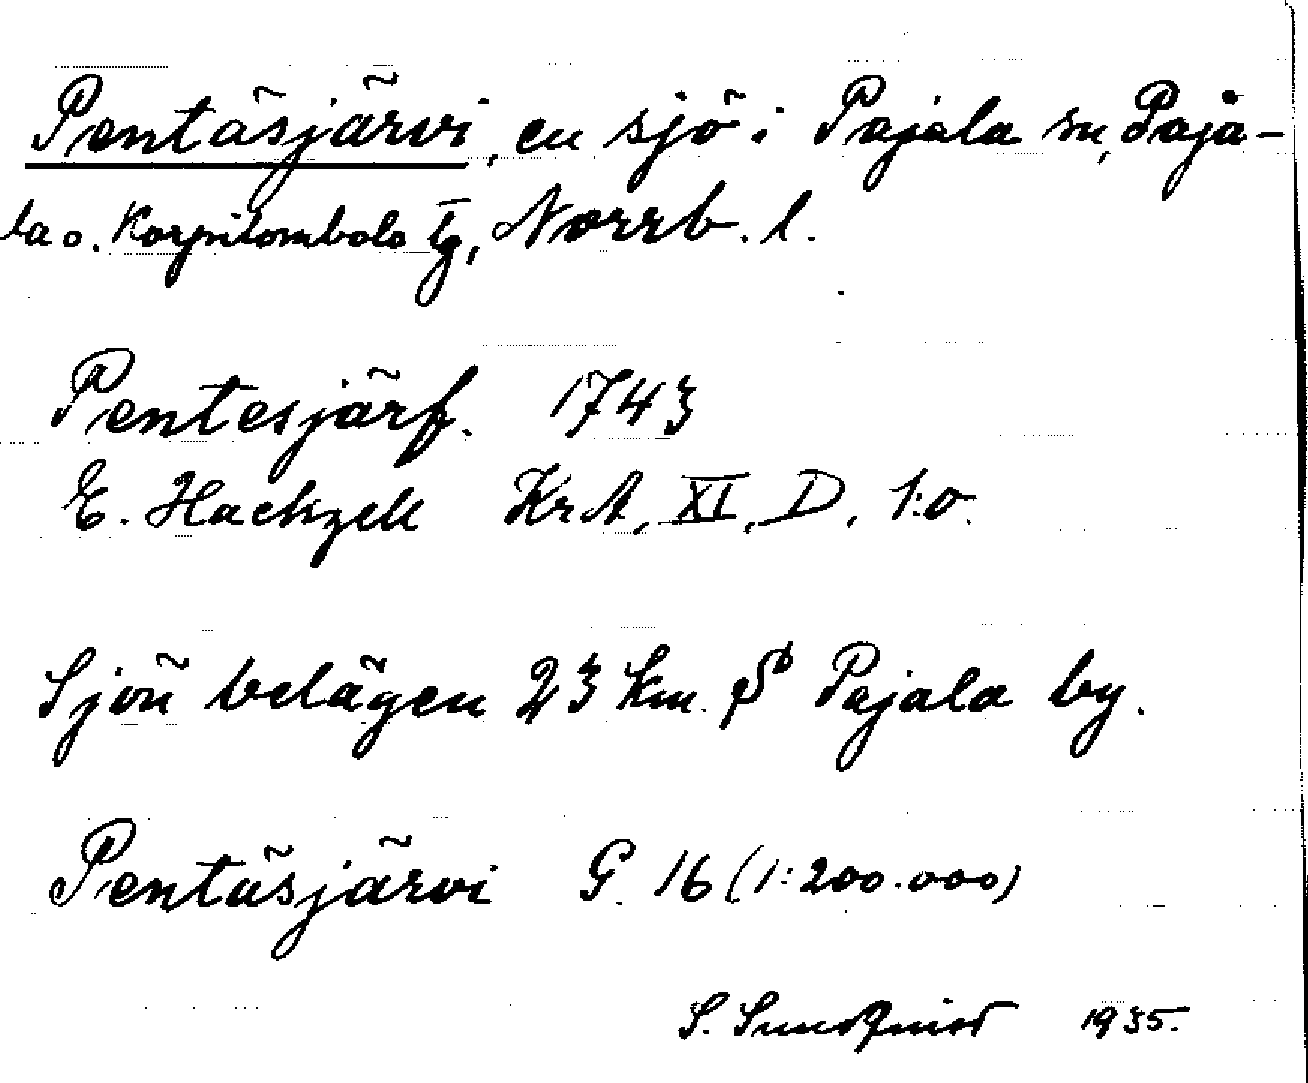 Pentäsjärvi, en sjö i Pajala sn, Paja-
la o. Korpilombolo tg, Norrb. l.
Pentesjärf. 1743
E. Hackzell KrA, XI, D, 1:o.
Sjön belägen 23 km. S Pajala by.
Pentäsjärvi G 16 (1:200.000)
S. Sundqvist 1935.